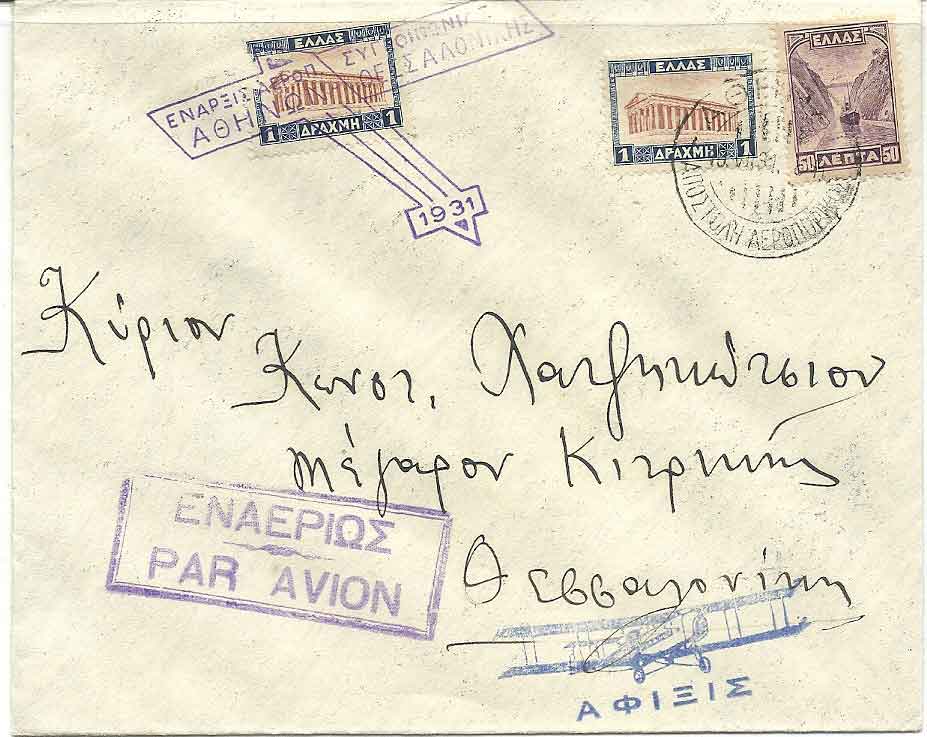 ΕΝΑΡΞΙΣ ΑΕΡΟΠ ΣΥΓΚΟΙΝΩΝΙ
ΑΘΗΝΩ ΘΕΣΣΑΛΟΝΙΚΗΣ
1931
ΕΛΛΑΣ
1 ΔΡΑΧΜΗ 1
ΕΛΛΑΣ
1 ΔΡΑΧΜΗ 1
ΕΛΛΑΣ
50 ΛΕΠΤΑ 50
ΑΠΟΣΤΟΛΗ ΑΕΡΟΠΟΡΙΚΩΣ
Κύριον
Κωνστ, Χατζηκώτσιου
Μέγαρον Κιτρικής
Θεσσαλονίκη
ΕΝΑΕΡΙΩΣ
PAR AVION
ΑΦΙΞΙΣ